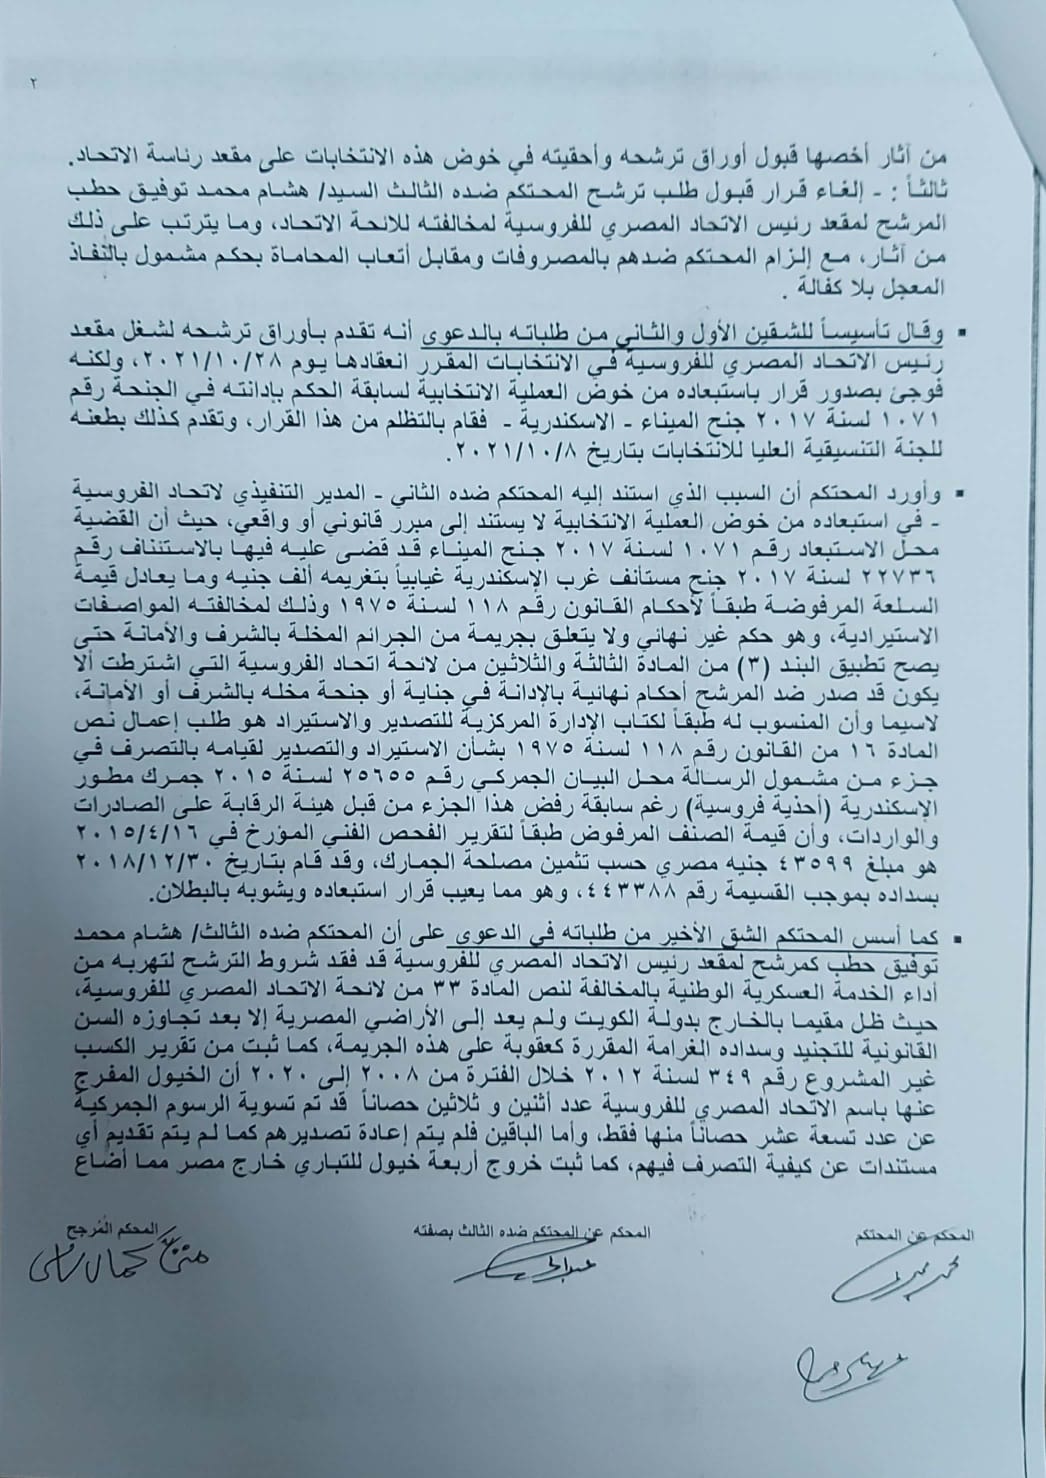 ٢
من آثار أخصها قبول أوراق ترشحه وأحقيته في خوض هذه الانتخابات على مقعد رئاسة الاتحاد.
ثالثاً : - إلغاء قرار قبول طلب ترشح المحتكم ضده الثالث السيد/ هشام محمد توفيق حطب
المرشح لمقعد رئيس الاتحاد المصري للفروسية لمخالفته للائحة الاتحاد، وما يترتب على ذلك
من آثار، مع إلزام المحتكم ضدهم بالمصروفات ومقابل أتعاب المحاماة بحكم مشمول بالنفاذ
المعجل بلا كفالة .
▪ وقال تأسيساً للشقين الأول والثاني من طلباته بالدعوى أنه تقدم بأوراق ترشحه لشغل مقعد
رئيس الاتحاد المصري للفروسية في الانتخابات المقرر انعقادها يوم ٢٠٢١/١٠/٢٨، ولكنه
فوجئ بصدور قرار باستبعاده من خوض العملية الانتخابية لسابقة الحكم بإدانته في الجنحة رقم
١٠٧١ لسنة ٢٠١٧ جنح الميناء - الاسكندرية - فقام بالتظلم من هذا القرار، وتقدم كذلك بطعنه
للجنة التنسيقية العليا للانتخابات بتاريخ ٢٠٢١/١٠/٨.
▪ وأورد المحتكم أن السبب الذي استند إليه المحتكم ضده الثاني - المدير التنفيذي لاتحاد الفروسية
- في استبعاده من خوض العملية الانتخابية لا يستند إلى مبرر قانوني أو واقعي، حيث أن القضية
محل الاستبعاد رقم ١٠٧١ لسنة ٢٠١٧ جنح الميناء قد قضى عليه فيها بالاستئناف رقم
٢٢٧٣٦ لسنة ٢٠١٧ جنح مستأنف غرب الإسكندرية غيابياً بتغريمه ألف جنيه وما يعادل قيمة
السلعة المرفوضة طبقاً لأحكام القانون رقم ١١٨ لسنة ١٩٧٥ وذلك لمخالفته المواصفات
الاستيرادية، وهو حكم غير نهائي ولا يتعلق بجريمة من الجرائم المخلة بالشرف والأمانة حتى
يصح تطبيق البند (٣) من المادة الثالثة والثلاثين من لائحة اتحاد الفروسية التي اشترطت ألا
يكون قد صدر ضد المرشح أحكام نهائية بالإدانة في جناية أو جنحة مخله بالشرف أو الأمانة،
لاسيما وأن المنسوب له طبقاً لكتاب الإدارة المركزية للتصدير والاستيراد هو طلب إعمال نص
المادة ١٦ من القانون رقم ١١٨ لسنة ١٩٧٥ بشأن الاستيراد والتصدير لقيامه بالتصرف في
جزء من مشمول الرسالة محل البيان الجمركي رقم ٢٥٦٥٥ لسنة ٢٠١٥ جمرك مطور
الإسكندرية (أحذية فروسية) رغم سابقة رفض هذا الجزء من قبل هيئة الرقابة على الصادرات
والواردات، وأن قيمة الصنف المرفوض طبقاً لتقرير الفحص الفني المؤرخ في ٢٠١٥/٤/١٦
هو مبلغ ٤٣٥٩٩ جنيه مصري حسب تثمين مصلحة الجمارك، وقد قام بتاريخ ٢٠١٨/١٢/٣٠
بسداده بموجب القسيمة رقم ٤٤٣٣٨٨، وهو مما يعيب قرار استبعاده ويشوبه بالبطلان.
▪ كما أسس المحتكم الشق الأخير من طلباته في الدعوى على أن المحتكم ضده الثالث/ هشام محمد
توفيق حطب كمرشح لمقعد رئيس الاتحاد المصري للفروسية قد فقد شروط الترشح لتهربه من
أداء الخدمة العسكرية الوطنية بالمخالفة لنص المادة ٣٣ من لائحة الاتحاد المصري للفروسية،
حيث ظل مقيما بالخارج بدولة الكويت ولم يعد إلى الأراضي المصرية إلا بعد تجاوزه السن
القانونية للتجنيد وسداده الغرامة المقررة كعقوبة على هذه الجريمة، كما ثبت من تقرير الكسب
غير المشروع رقم ٣٤٩ لسنة ٢٠١٢ خلال الفترة من ٢٠٠٨ إلى ٢٠٢٠ أن الخيول المفرج
عنها باسم الاتحاد المصري للفروسية عدد أثنين و ثلاثين حصاناً قد تم تسوية الرسوم الجمركية
عن عدد تسعة عشر حصاناً منها فقط، وأما الباقين فلم يتم إعادة تصديرهم كما لم يتم تقديم أي
مستندات عن كيفية التصرف فيهم، كما ثبت خروج أربعة خيول للتباري خارج مصر مما أضاع
المحكم عن المحتكم
المحكم عن المحتكم ضده الثالث بصفته
المحكم المُرجح